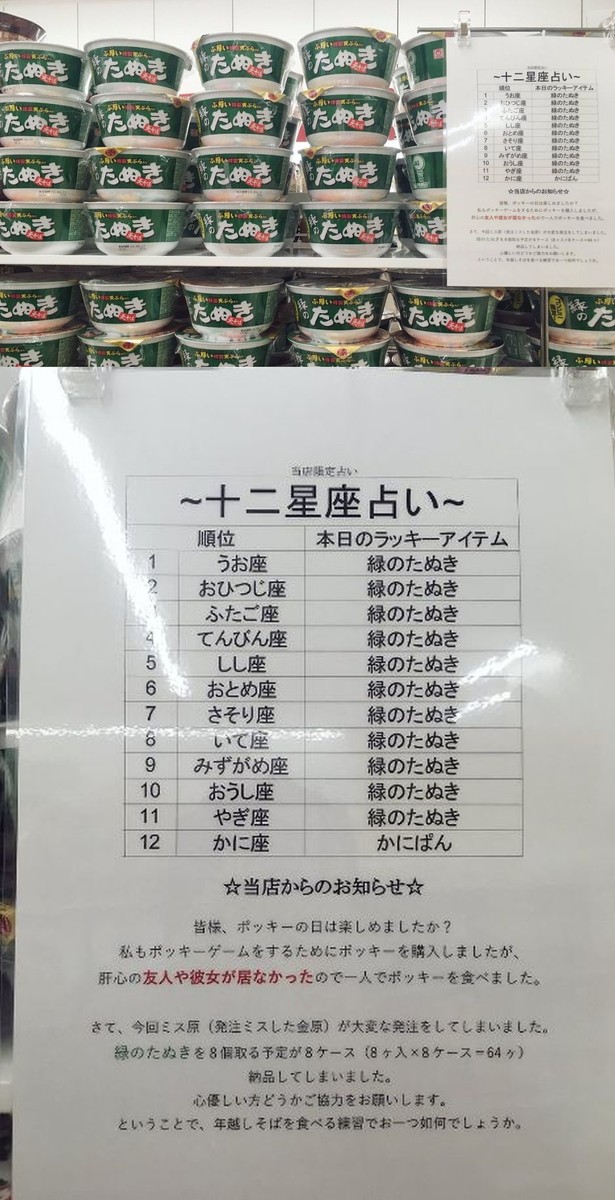 ふ厚い特製天ぷら…
緑のたぬき
天そば
当店限定占い
~十二星座占い~
順位 本日のラッキーアイテム
1 うお座 緑のたぬき
2 おひつじ座 緑のたぬき
3 ふたご座 緑のたぬき
4 てんびん座 緑のたぬき
5 しし座 緑のたぬき
6 おとめ座 緑のたぬき
7 さそり座 緑のたぬき
8 いて座 緑のたぬき
9 みずがめ座 緑のたぬき
10 おうし座 緑のたぬき
11 やぎ座 緑のたぬき
12 かに座 かにぱん
☆当店からのお知らせ☆
皆様、ポッキーの日は楽しめましたか？
私もポッキーゲームをするためにポッキーを購入しましたが、
肝心の友人や彼女が居なかったので一人でポッキーを食べました。
さて、今回ミス原（発注ミスした金原）が大変な発注をしてしまいました。
緑のたぬきを８個取る予定が８ケース（８ヶ入×８ケース＝64ヶ）
納品してしまいました。
心優しい方どうかご協力をお願いします。
ということで、年越しそばを食べる練習でお一つ如何でしょうか。